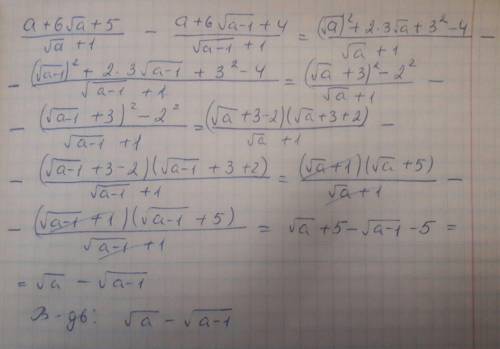 (a+6√a+5)/(√a+1) - (a+6√(a-1)+4)/(√(a-1)+1) = ((√a)²+2·3√a+3²-4)/(√a+1) -
- ((√(a-1))²+2·3√(a-1)+3²-4)/(√(a-1)+1) = ((√a+3)²-2²)/(√a+1) -
- ((√(a-1)+3)²-2²)/(√(a-1)+1) = ((√a+3-2)(√a+3+2))/(√a+1) -
- ((√(a-1)+3-2)(√(a-1)+3+2))/(√(a-1)+1) = ((√a+1)(√a+5))/(√a+1) -
- ((√(a-1)+1)(√(a-1)+5))/(√(a-1)+1) = √a+5-√(a-1)-5 =
= √a - √(a-1)
В-дь: √a - √(a-1)